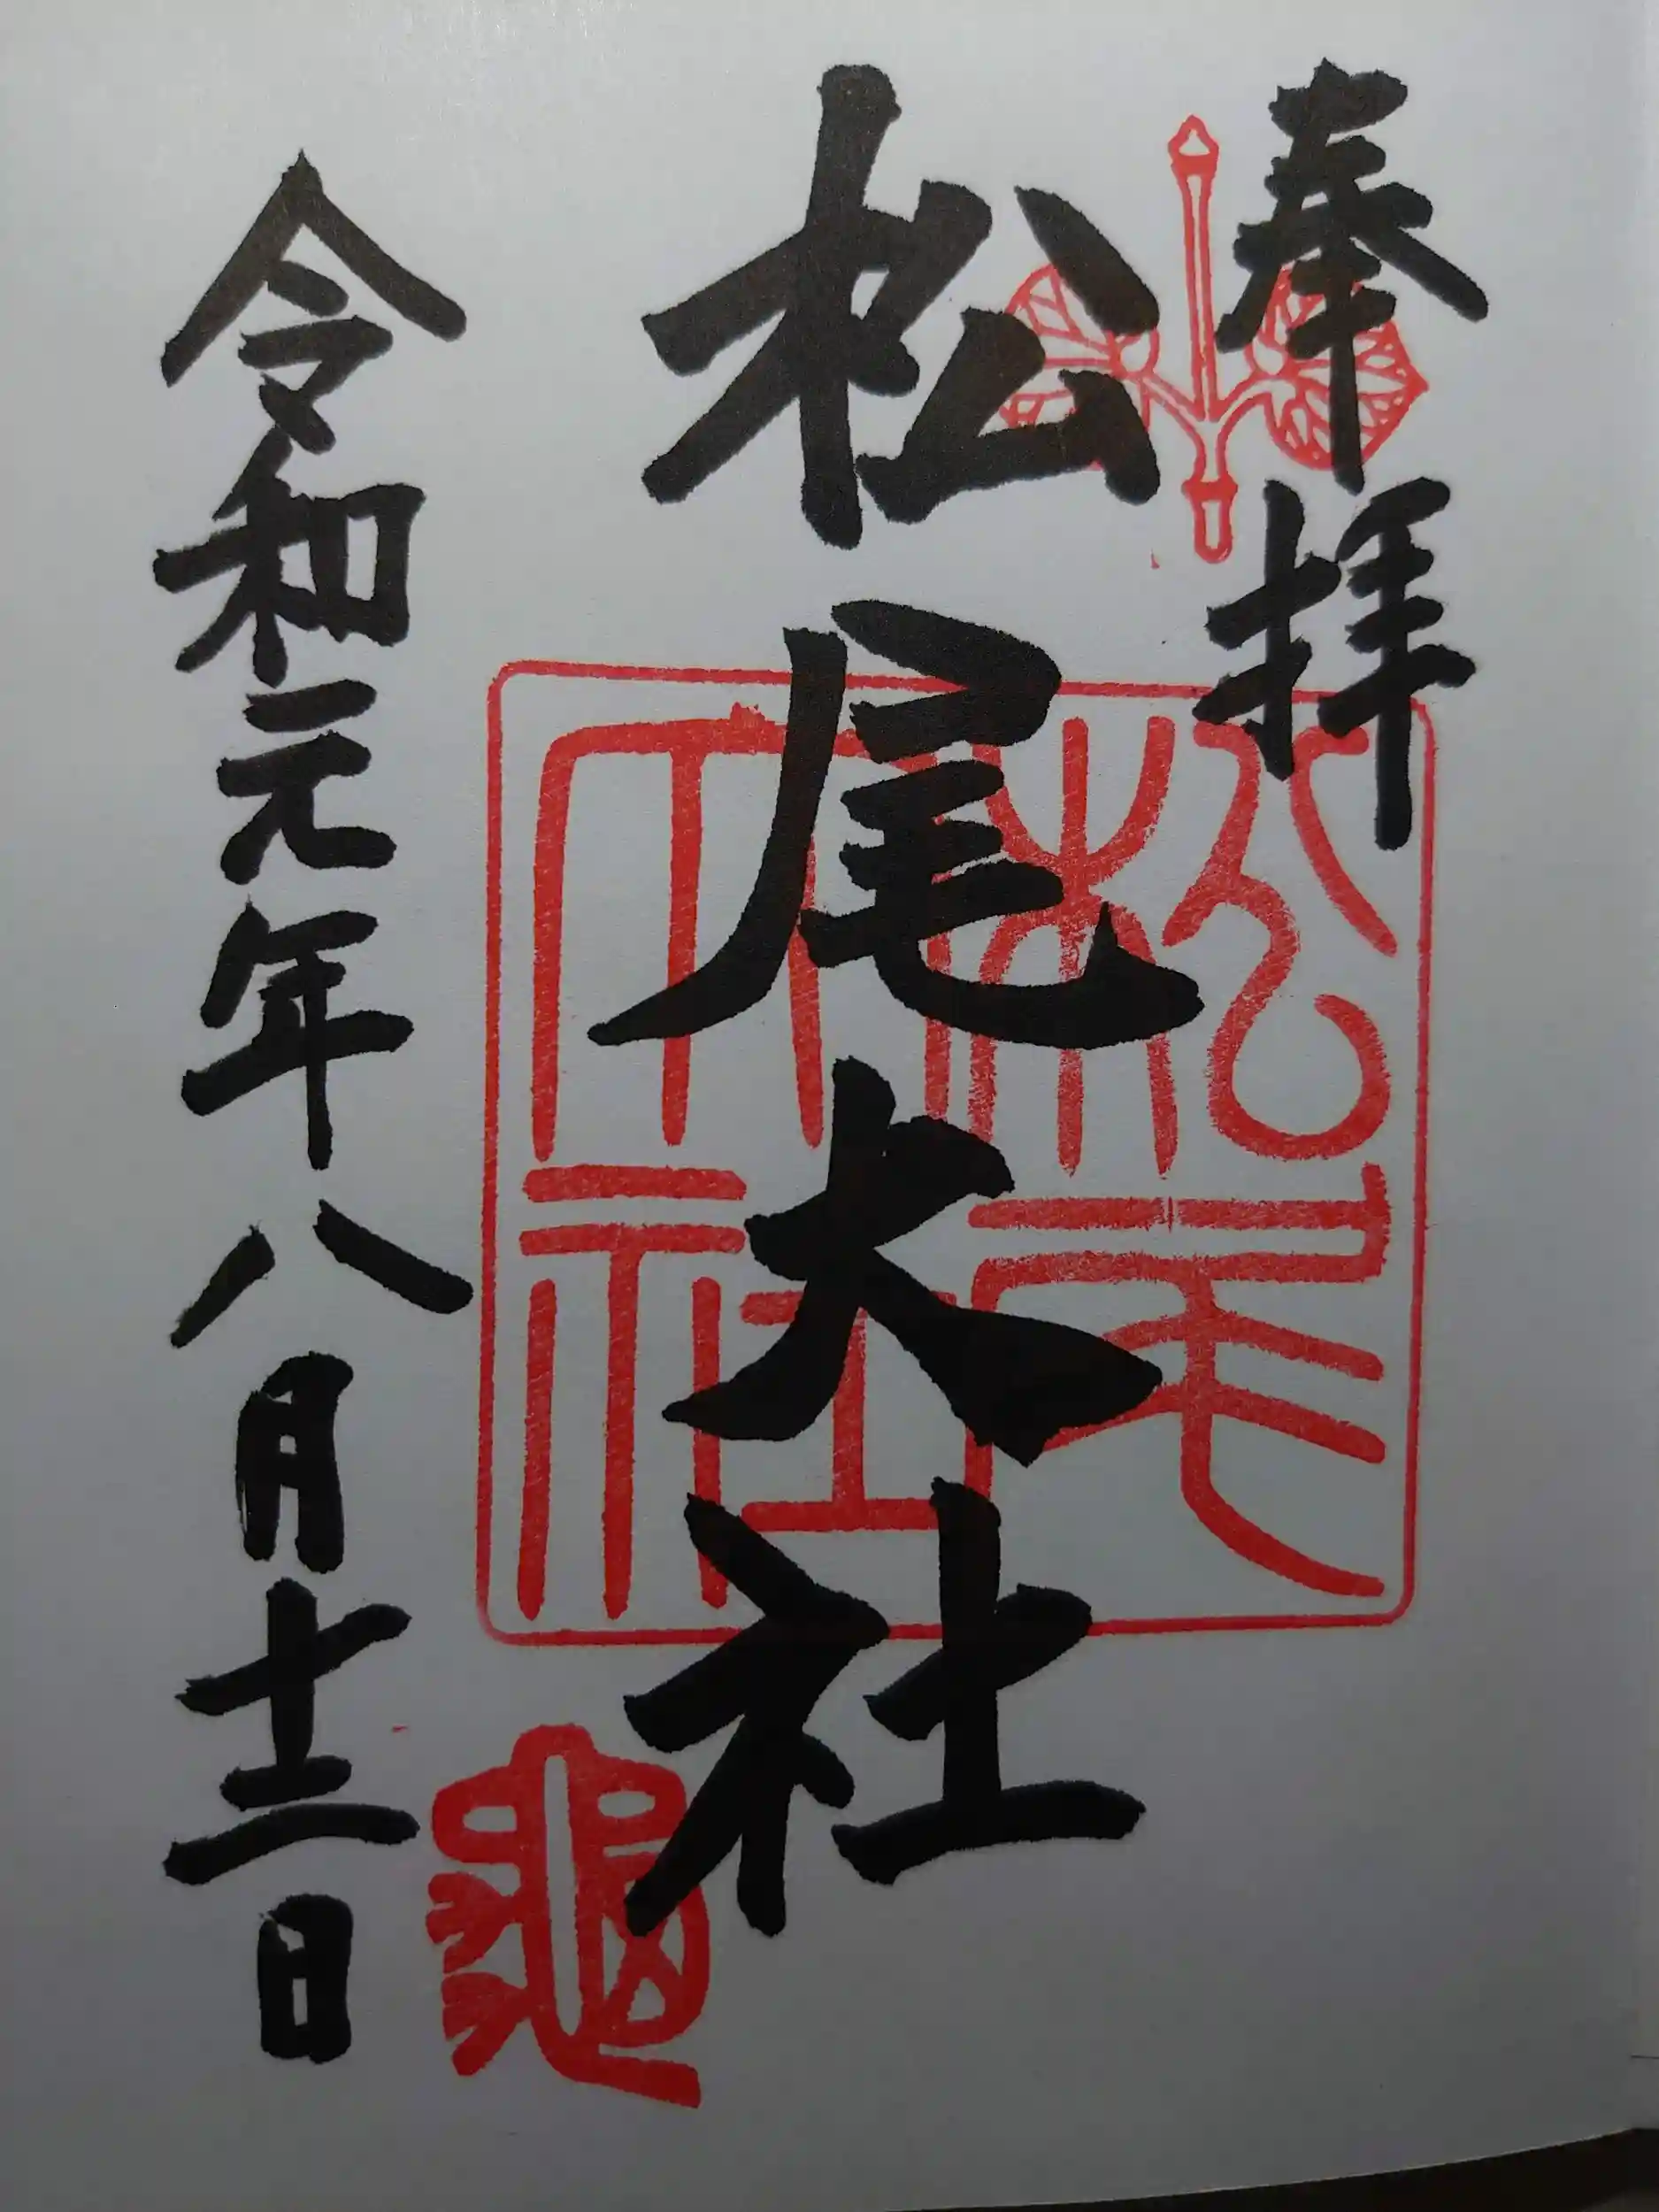 奉拝
松尾大社
令和元年八月十二日
松尾大社
龜